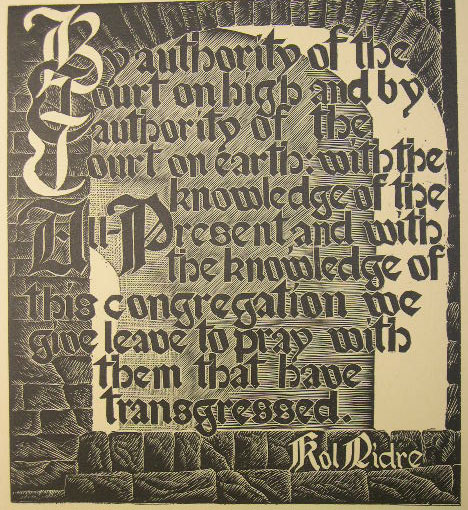 By authority of the
Court on high and by
authority of the
Court on earth: with the
knowledge of the
All-Present, and with
the knowledge of
this congregation we
give leave to pray with
them that have
transgressed.
Kol Nidre